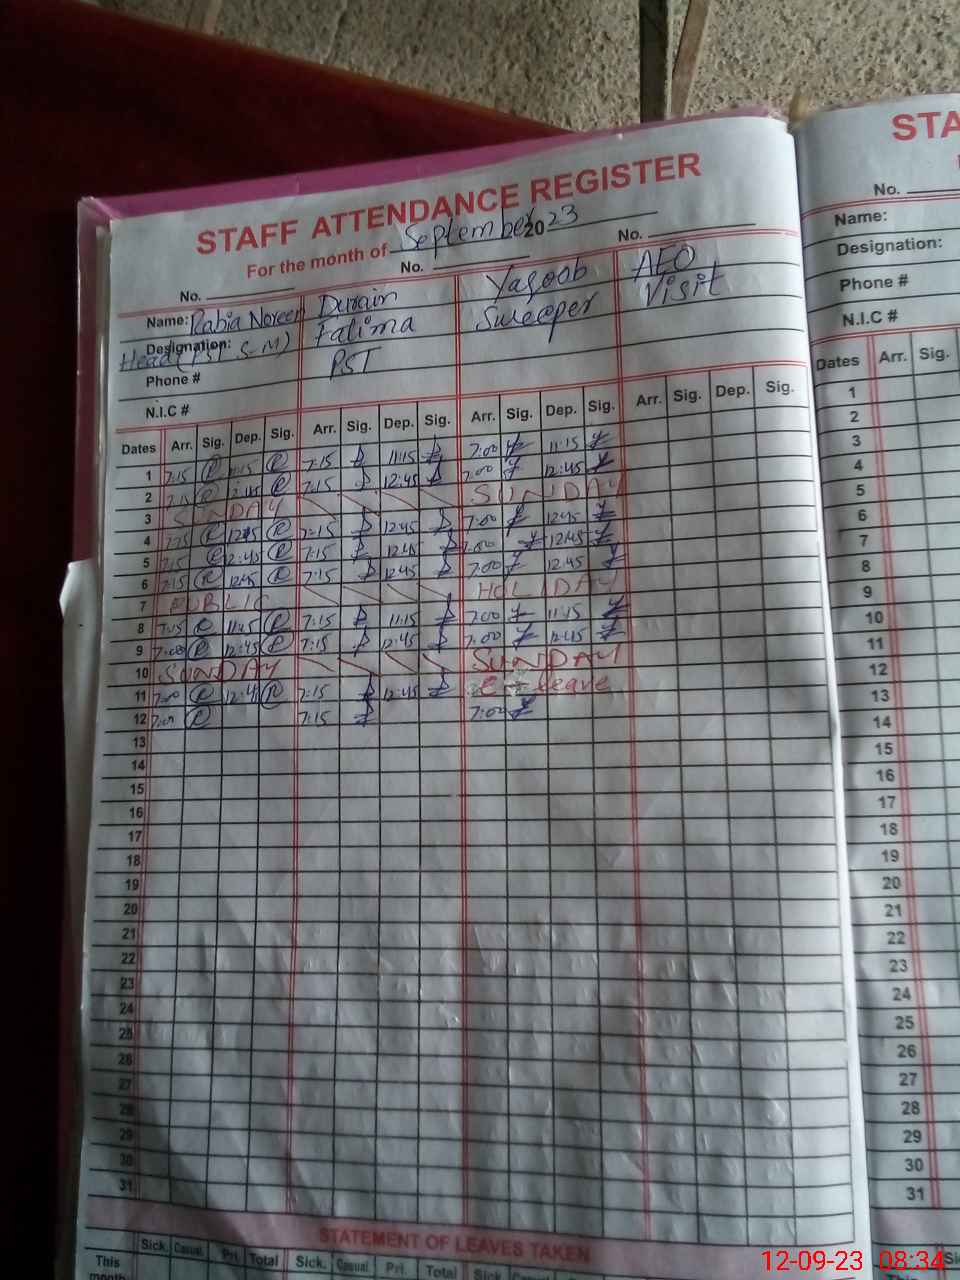 STAFF ATTENDANCE REGISTER
For the month of September 2023
No. No. No.
Name: Rabia Noreen Durain Yaqoob AEO
Designation: Fatima Sweeper Visit
Head (PST S-M) PST
Phone #
N.I.C #
Dates Arr. Sig. Dep. Sig. Arr. Sig. Dep. Sig. Arr. Sig. Dep. Sig. Arr. Sig. Dep. Sig.
1 7:15 7:15 11:15 7:00 11:15
2 7:15 7:15 12:45 7:00 12:45
3 SUNDAY SUNDAY
4 7:15 12:45 7:15 12:45 7:00 12:45
5 7:15 12:45 7:15 12:45 7:00 12:45
6 7:15 12:45 7:15 12:45 7:00 12:45
7 PUBLIC HOLIDAY
8 7:15 7:15 11:15 7:00 11:15
9 7:00 12:45 7:15 12:45 7:00 12:45
10 SUNDAY SUNDAY
11 7:00 12:45 7:15 12:45 leave
12 7:00 7:15 7:00
13
14
15
16
17
18
19
20
21
22
23
24
25
26
27
28
29
30
31
STATEMENT OF LEAVES TAKEN
Sick. Casual. Pri. Total Sick. Casual Pri. Total Sick. Casual
This
month
STA
No.
Name:
Designation:
Phone #
N.I.C #
Dates Arr. Sig.
1
2
3
4
5
6
7
8
9
10
11
12
13
14
15
16
17
18
19
20
21
22
23
24
25
26
27
28
29
30
31
12-09-23 08:34